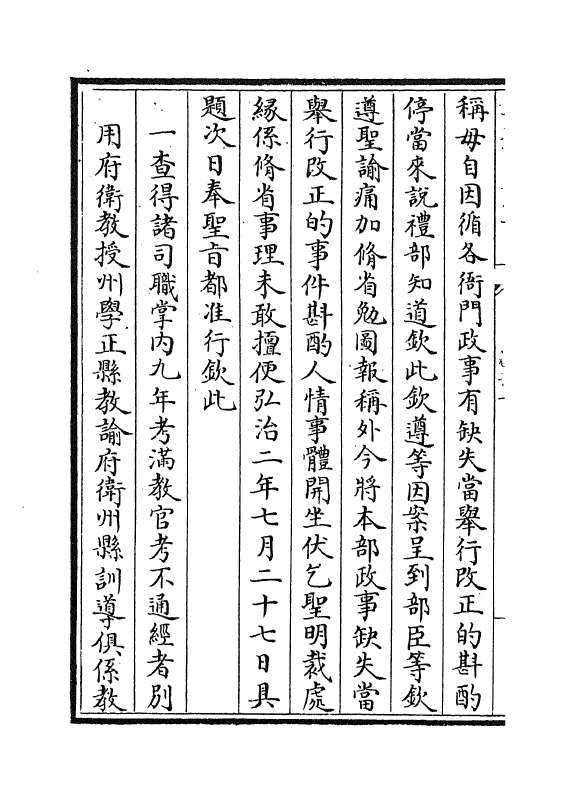 稱毋自因循各衙門政事有缺失當舉行改正的斟酌
停當來說禮部知道欽此欽遵等因案呈到部臣等欽
遵聖諭痛加脩省勉圖報稱外今將本部政事缺失當
舉行改正的事件斟酌人情事體開坐伏乞聖明裁處
緣係脩省事理未敢擅便弘治二年七月二十七日具
題次日奉聖旨都准行欽此
一查得諸司職掌内九年考滿教官考不通經者別
用府衛教授州學正縣教諭府衛州縣訓導俱係教